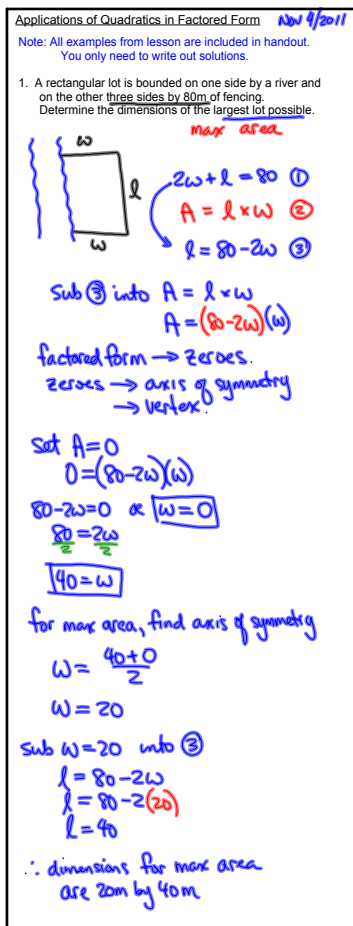 Applications of Quadratics in Factored Form Nov 4/2011
Note: All examples from lesson are included in handout.
You only need to write out solutions.
1. A rectangular lot is bounded on one side by a river and
on the other three sides by 80m of fencing.
Determine the dimensions of the largest lot possible.
max area
w
l
w
2w + l = 80 ①
A = l × w ②
l = 80 - 2w ③
Sub ③ into A = l × w
A = (80-2w)(w)
factored form → zeroes.
zeroes → axis of symmetry
→ vertex.
set A=0
0=(80-2w)(w)
80-2w=0 or w=0
80/2 = 2w/2
40=w
for max area, find axis of symmetry
w = (40+0)/2
w = 20
sub w=20 into ③
l = 80-2w
l = 80-2(20)
l = 40
∴ dimensions for max area
are 20m by 40m